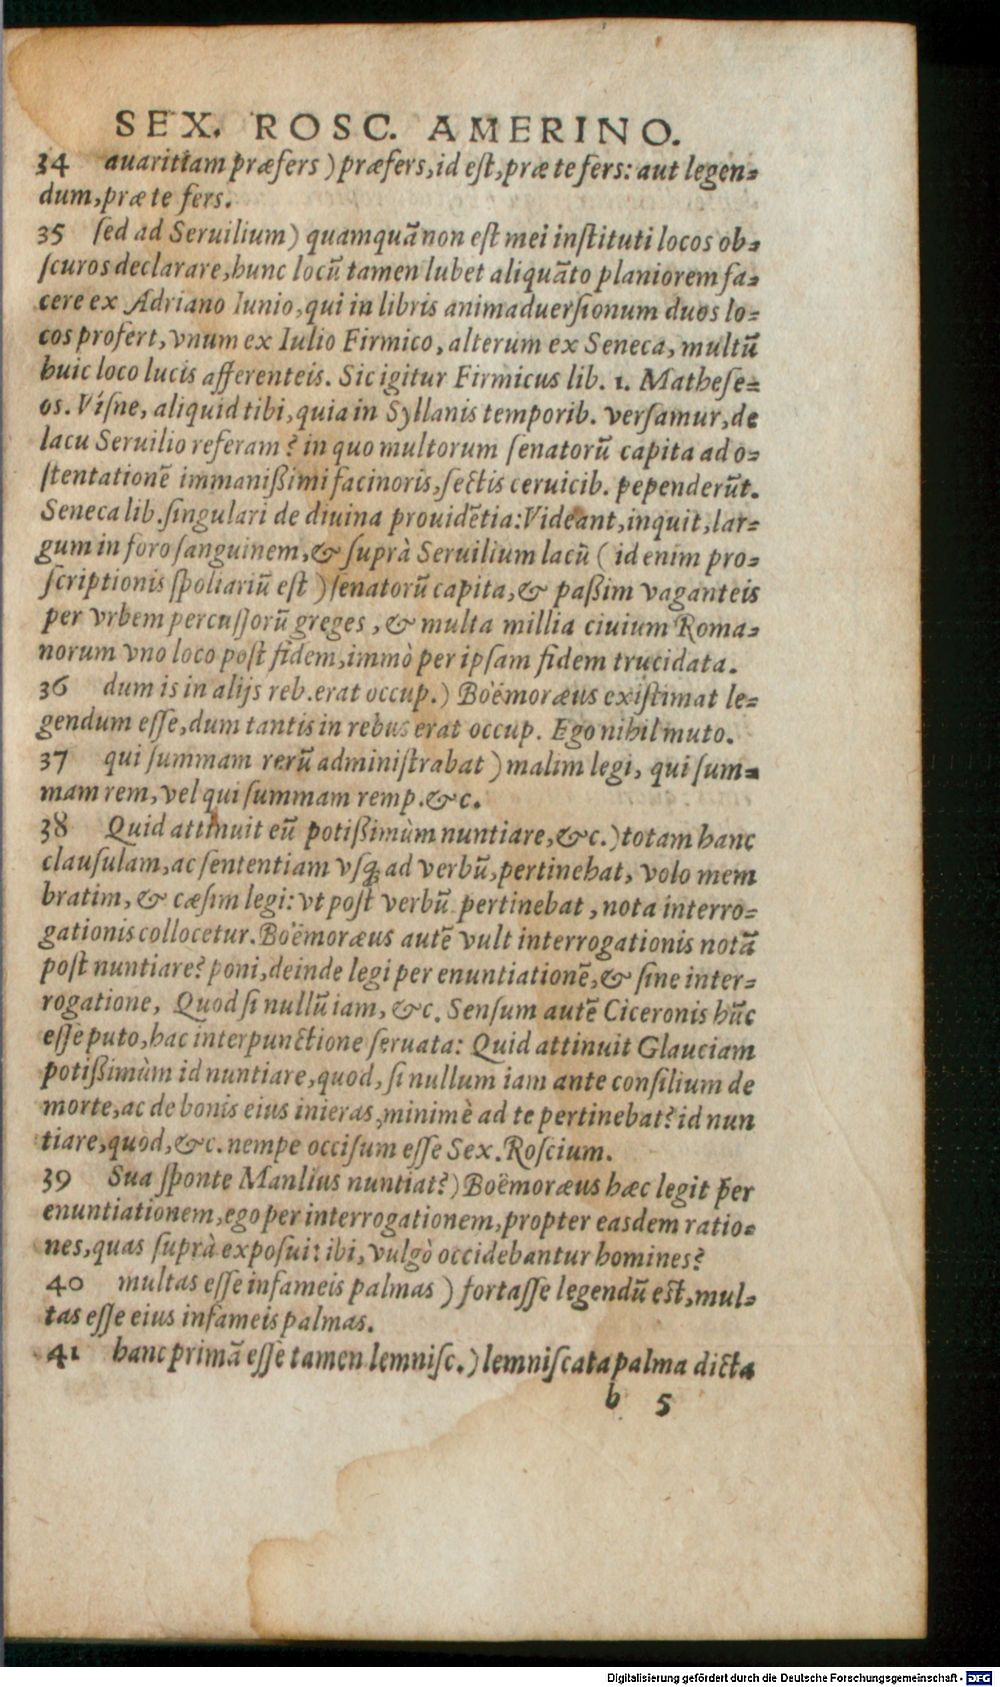 SEX. ROSC. AMERINO.
34 auaritiam præfers ) præfers, id eſt, præ te fers: aut legen-
dum, præ te fers.
35 ſed ad Seruilium ) quamquā non eſt mei inſtituti locos ob-
ſcuros declarare, hunc locū tamen lubet aliquāto planiorem fa-
cere ex Adriano Iunio, qui in libris animaduerſionum duos lo-
cos profert, vnum ex Iulio Firmico, alterum ex Seneca, multū
huic loco lucis afferenteis. Sic igitur Firmicus lib. 1. Matheſe-
os. Viſne, aliquid tibi, quia in Syllanis temporib. verſamur, de
lacu Seruilio referam? in quo multorum ſenatorū capita ad o-
ſtentationē immanißimi facinoris, ſectis ceruicib. pependerūt.
Seneca lib. ſingulari de diuina prouidētia: Videant, inquit, lar-
gum in foro ſanguinem, & ſuprà Seruilium lacū ( id enim pro-
ſcriptionis ſpoliariū eſt ) ſenatorū capita, & paßim vaganteis
per vrbem percuſſorū greges, & multa millia ciuium Roma-
norum vno loco poſt fidem, immò per ipſam fidem trucidata.
36 dum is in alijs reb. erat occup. ) Boëmoræus exiſtimat le-
gendum eſſe, dum tantis in rebus erat occup. Ego nihil muto.
37 qui ſummam rerū adminiſtrabat ) malim legi, qui ſum-
mam rem, vel qui ſummam remp. &c.
38 Quid attinuit eū potißimùm nuntiare, &c. ) totam hanc
clauſulam, ac ſententiam vſq; ad verbū, pertinebat, volo mem
bratim, & cæſim legi: vt poſt verbū pertinebat, nota interro-
gationis collocetur. Boëmoræus autē vult interrogationis notā
poſt nuntiare? poni, deinde legi per enuntiationē, & ſine inter-
rogatione, Quod ſi nullū iam, &c. Senſum autē Ciceronis hūc
eſſe puto, hac interpunctione ſeruata: Quid attinuit Glauciam
potißimùm id nuntiare, quod, ſi nullum iam ante conſilium de
morte, ac de bonis eius inieras, minimè ad te pertinebat? id nun
tiare, quod, &c. nempe occiſum eſſe Sex. Roſcium.
39 Sua ſponte Manlius nuntiat? ) Boëmoræus hæc legit per
enuntiationem, ego per interrogationem, propter easdem ratio-
nes, quas ſuprà expoſui: ibi, vulgò occidebantur homines?
40 multas eſſe infameis palmas ) fortaſſe legendū eſt, mul-
tas eſſe eius infameis palmas.
41 hanc primā eſſe tamen lemniſc. ) lemniſcata palma dicta
b 5
Digitalisierung gefördert durch die Deutsche Forschungsgemeinschaft - DFG